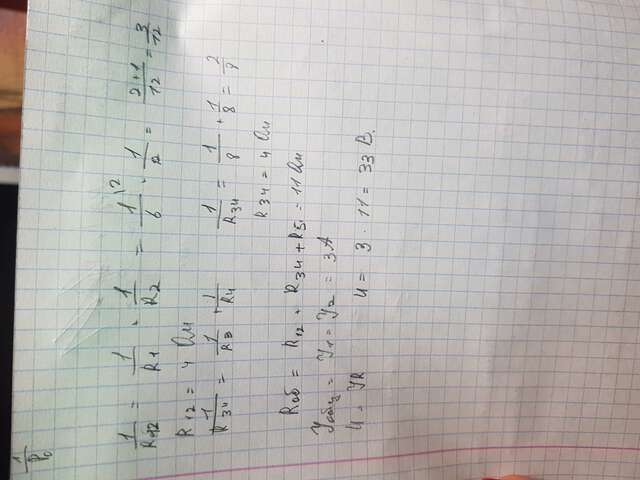 1/R₀
1/R12 = 1/R1 + 1/R2 = 1/6 \2 + 1/12 = 2+1/12 = 3/12
R12 = 4 Ом
1/R34 = 1/R3 + 1/R4
1/R34 = 1/8 + 1/8 = 2/8
R34 = 4 Ом
Rоб = R12 + R34 + R5 = 11 Ом
Yобщ = Y1 = Y2 = 3А
U = YR
U = 3 · 11 = 33 В.